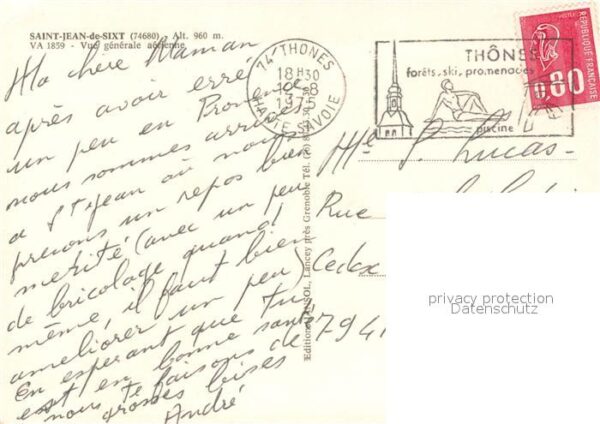 SAINT-JEAN-de-SIXT (74680) - Alt. 960 m.
VA 1859 - Vue générale aérienne
Ma chère Maman
après avoir erré
un peu en Provence
nous sommes arrivés
à St Jean où nous
prenons un repos bien
mérité (avec un peu
de bricolage quand
même, il faut bien
améliorer un peu)
En esperant que tu
est en bonne santé
nous te faisons de
grosses bises
André
Editions Lancey près Grenoble Tél. (76)
74 THONES
18 H 30
-8
1975
HAUTE-SAVOIE
THÔNES
forêts, ski, promenades
piscine
REPUBLIQUE FRANCAISE
POSTES
0,80
P. Lucas
Rue
Cedex
7941
privacy protection
Datenschutz